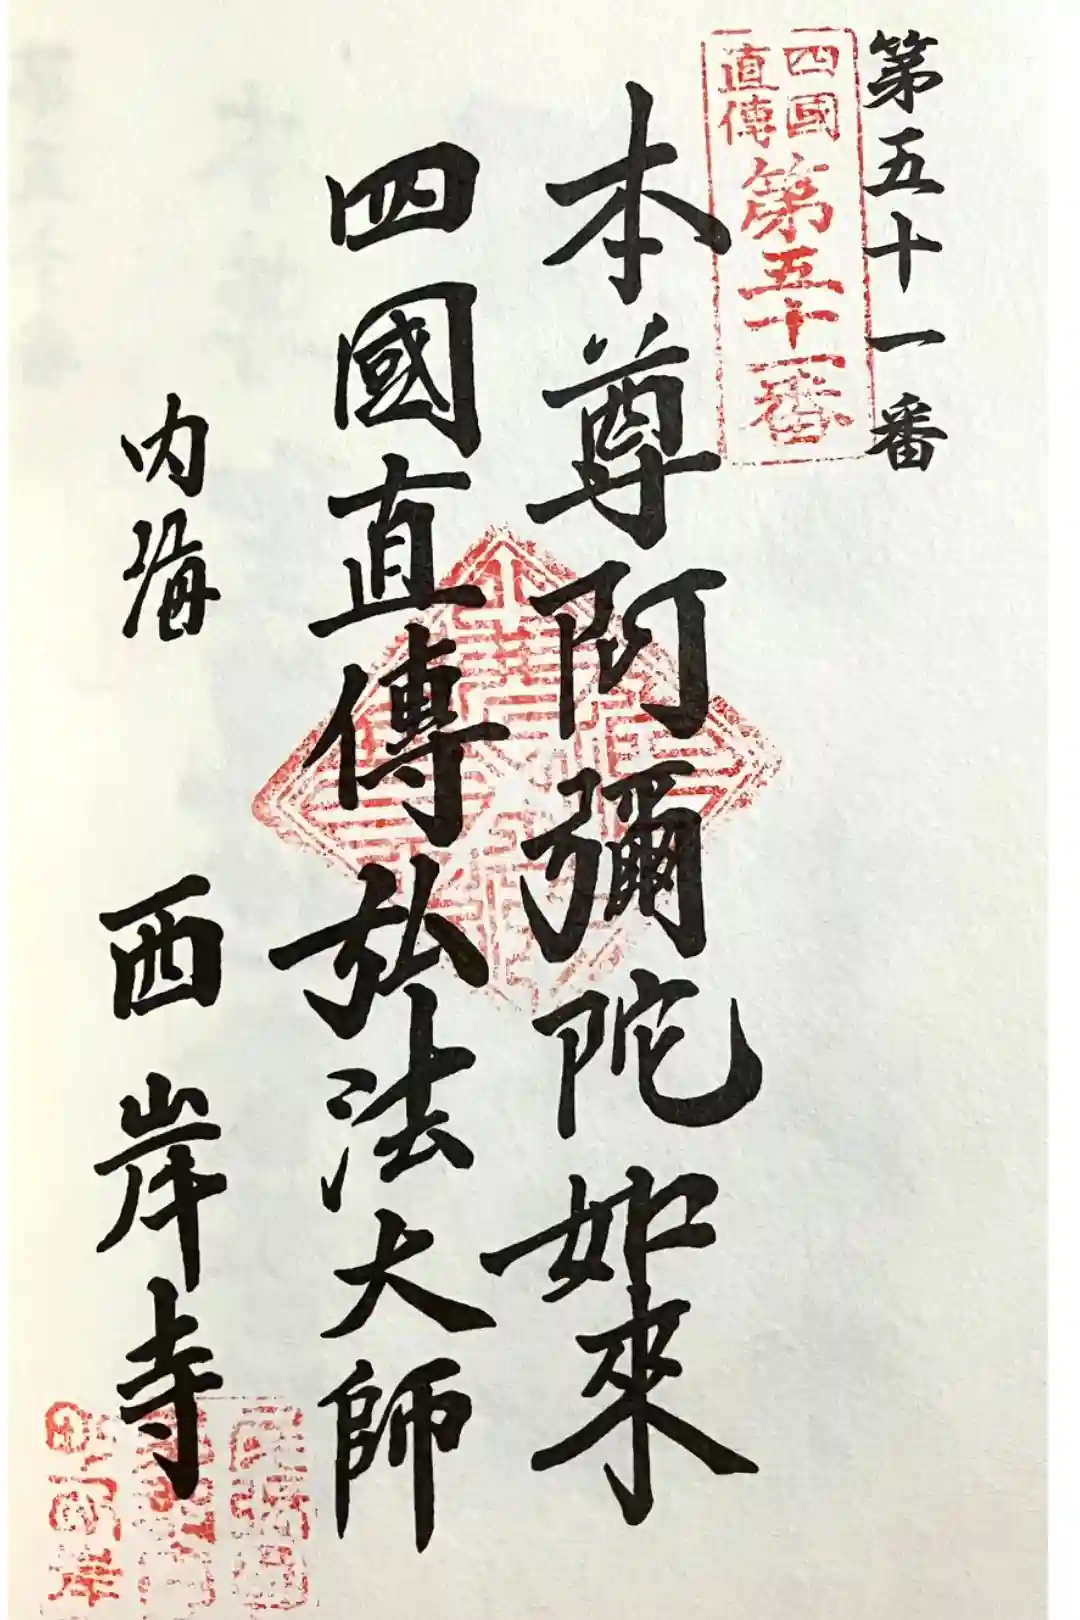 第五十一番
四國
直傳
第五十一番
本尊阿彌陀如來
四國直傳弘法大師
内海
西岸寺